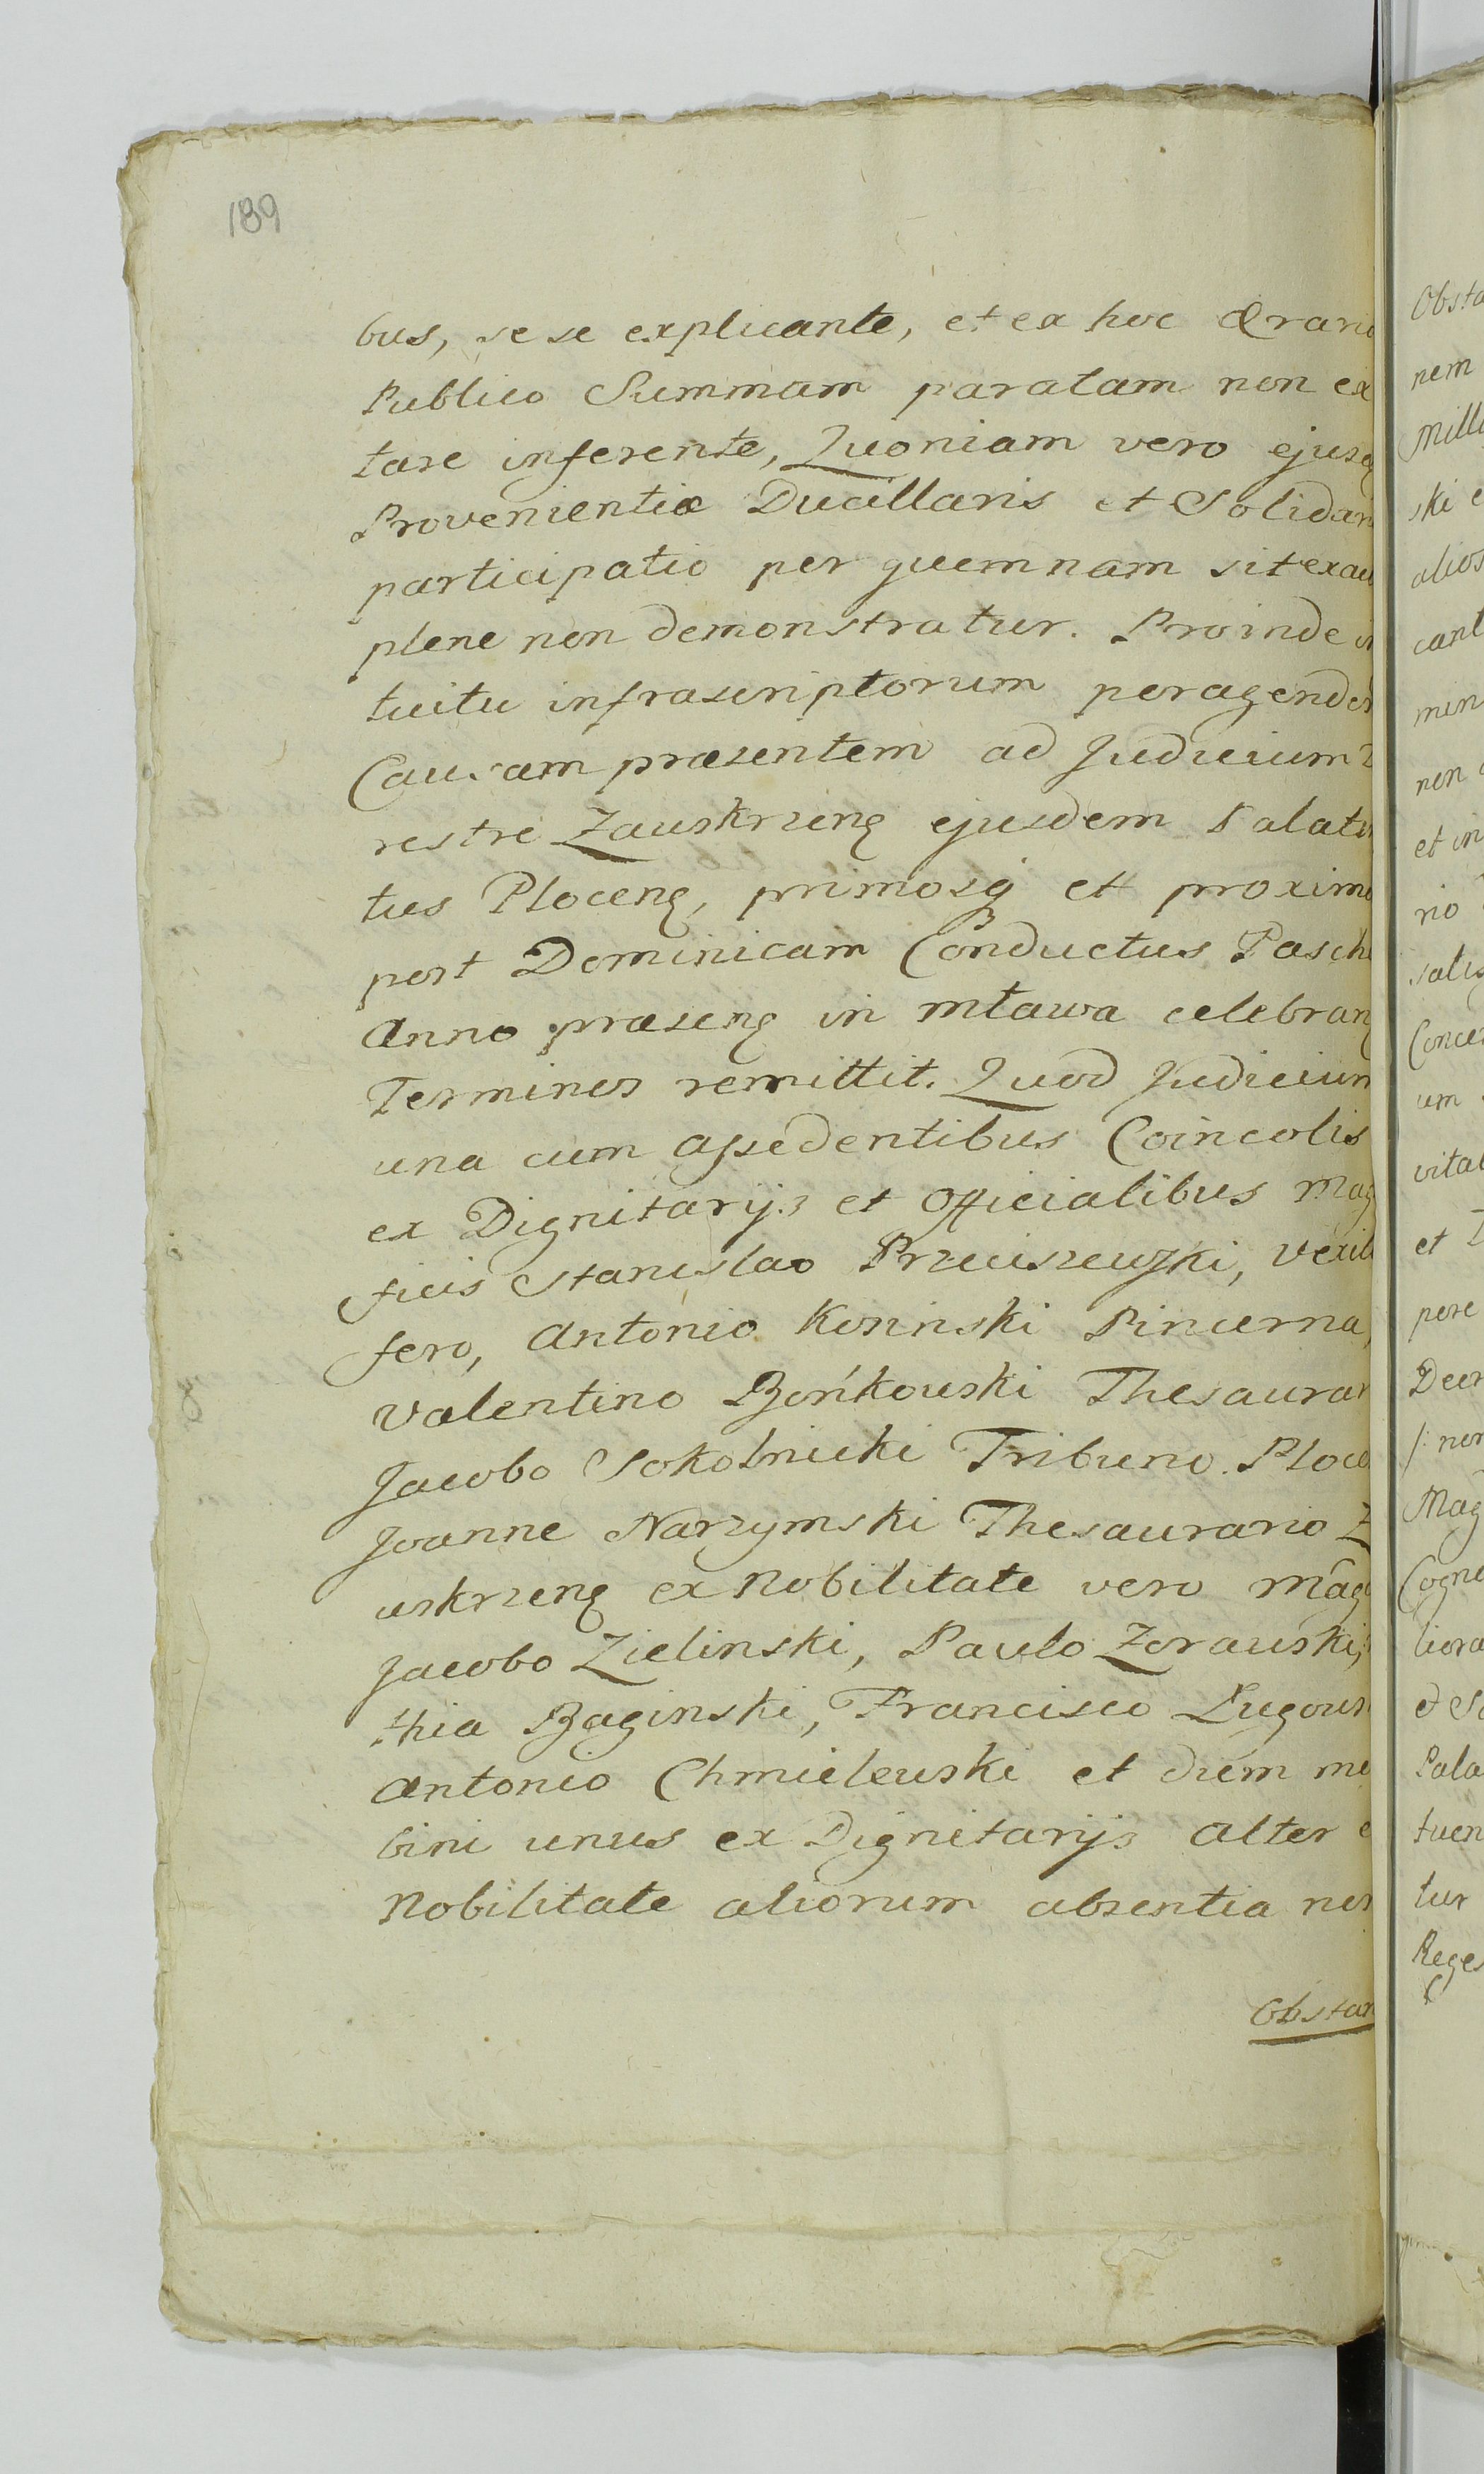 189
bus, se se explicante, et ex hoc Ærario
Publico Summam paratam non ex
tare inferente, Quoniam vero ejusq
Provenientiæ Ducillaris et Solidari
participatio per quemnam sit exau
plene non demonstratur. Proinde in
tuitu infrascriptorum peragendor
Causam præsentem ad Judicium
restre Zauskrzenę ejusdem Palati
tus Plocenę, primosq et proximo
post Dominicam Conductus Pasch
Anno præsenę in Mława celebranę
Terminos remittit. Quod Judicium
una cum assedentibus Coincolis
ex Dignitarijs et Officialibus Mag
ficis Stanislao Przeciszewski, Vexill
fero, Antonio Kosinski Pincerna,
Valentino Bońkowski Thesaurar
Jacobo Sokolnicki Tribuno Ploce
Joanne Narzymski Thesaurario Z
uskrzenę ex Nobilitate vero Mag
Jacobo Zielinski, Paulo Zorawski,
thia Baginski, Francisco Ługows
Antonio Chmielewski et diem me
bini unus ex Dignitarijs alter e
Nobilitate aliorum absentia non
Obstan
Obsta
nem
Milli
ski e
alios
cant
min
non
et in
rio
satis
Conce
um
vital
et
pore
Decr
/: non
Mag
Cogn
liora
Pala
tuen
tur
Reges